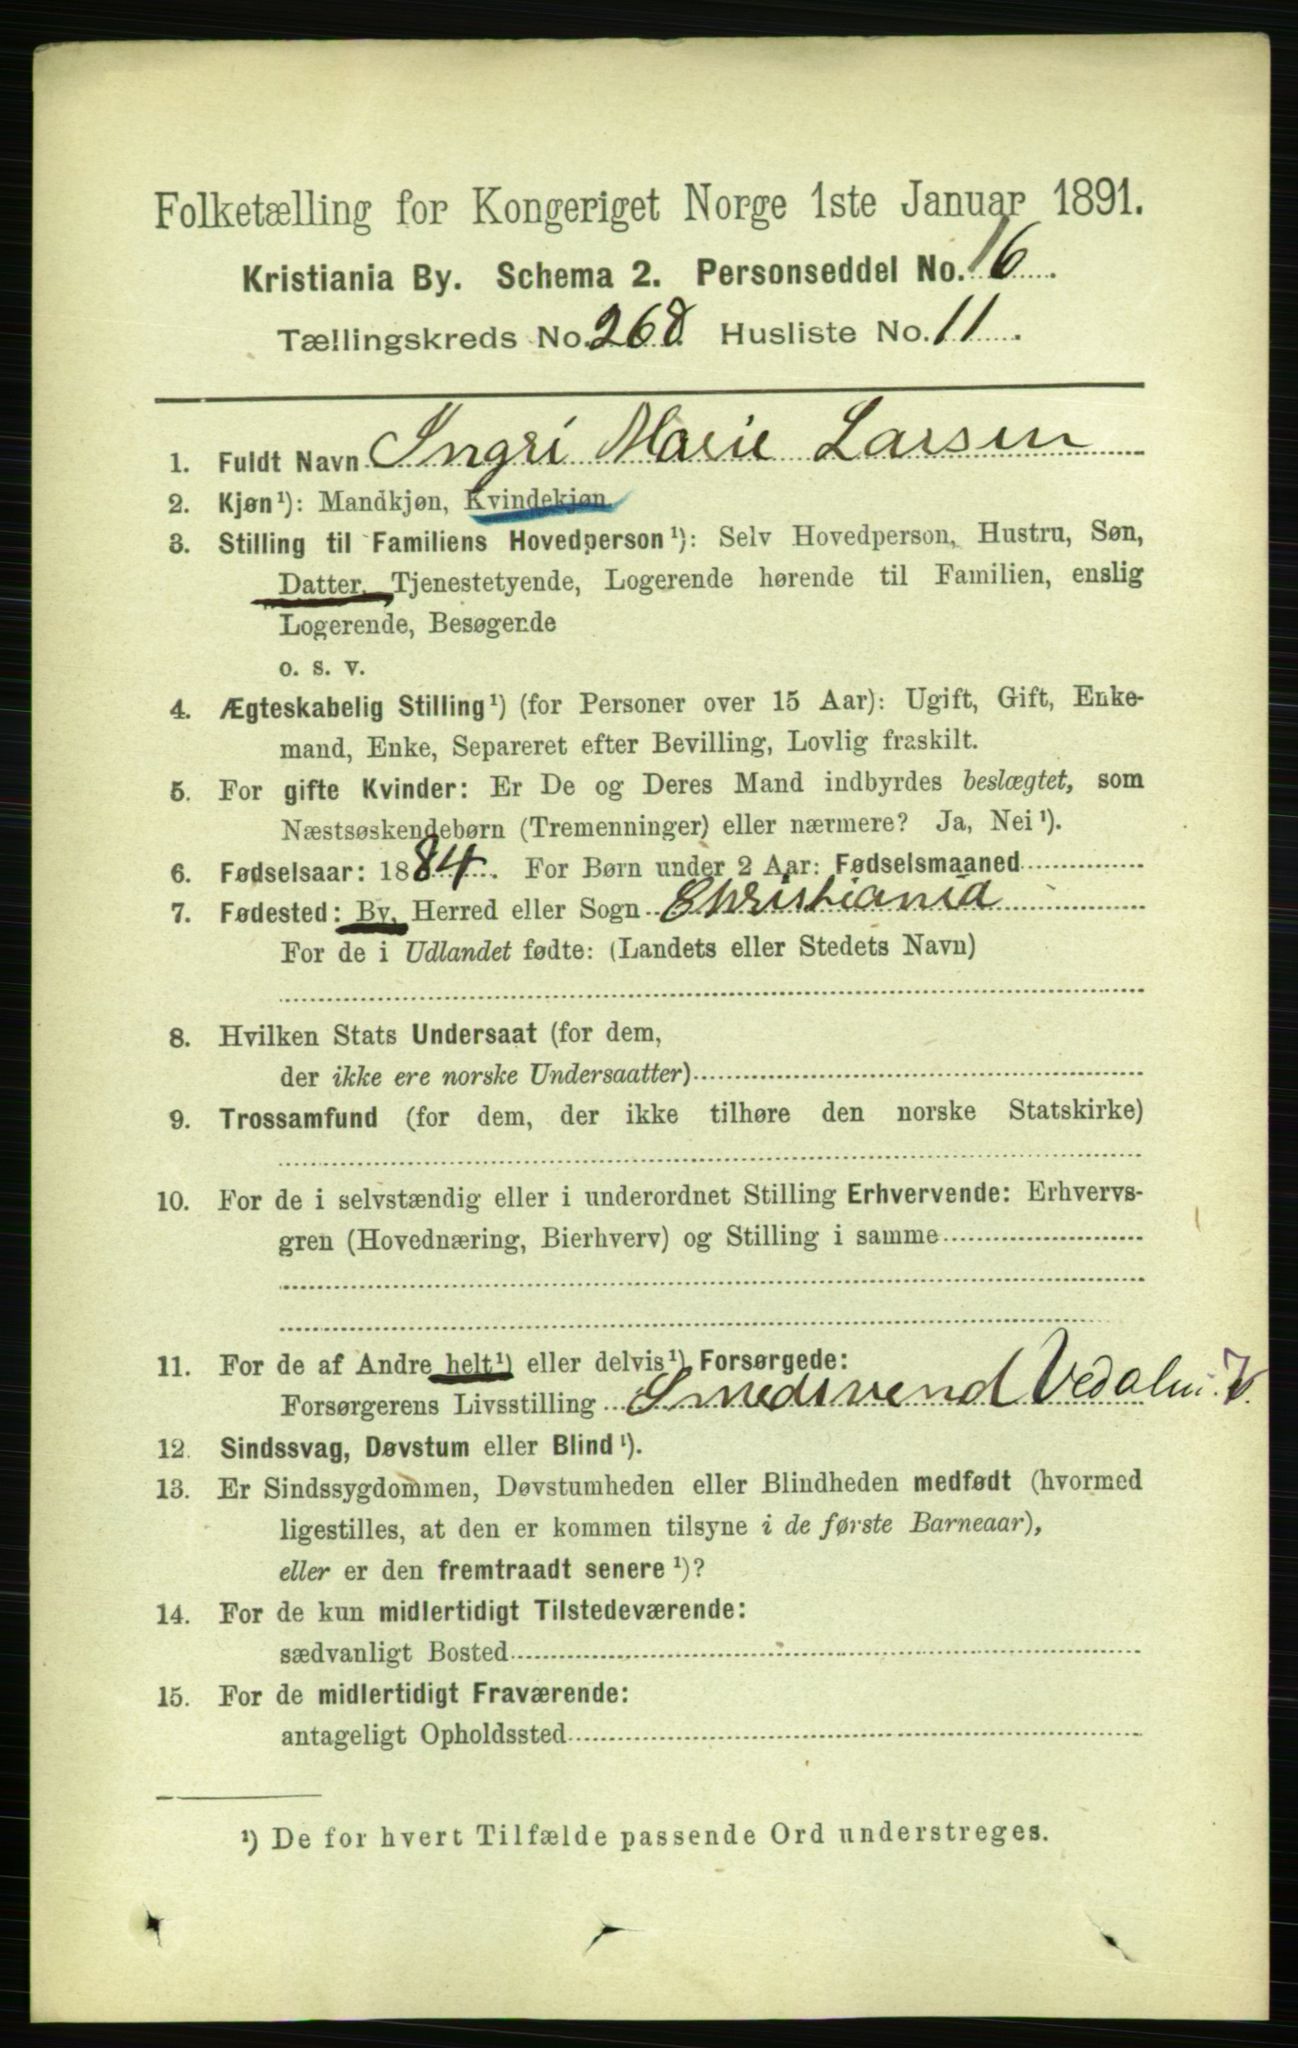 Folketælling for Kongeriget Norge 1ste Januar 1891.
Kristiania By. Schema 2. Personseddel No. 16
Tællingskreds No. 268 Husliste No. 11
1. Fuldt Navn Ingri Marie Larsen
2. Kjøn¹): Mandkjøn, Kvindekjøn.
3. Stilling til Familiens Hovedperson¹): Selv Hovedperson, Hustru, Søn,
Datter, Tjenestetyende, Logerende hørende til Familien, enslig
Logerende, Besøgende
o. s. v.
4. Ægteskabelig Stilling¹) (for Personer over 15 Aar): Ugift, Gift, Enke-
mand, Enke, Separeret efter Bevilling, Lovlig fraskilt.
5. For gifte Kvinder: Er De og Deres Mand indbyrdes beslægtet, som
Næstsøskendebørn (Tremenninger) eller nærmere? Ja, Nei¹).
6. Fødselsaar: 1884. For Børn under 2 Aar: Fødselsmaaned
7. Fødested: By, Herred eller Sogn Christiania
For de i Udlandet fødte: (Landets eller Stedets Navn)
8. Hvilken Stats Undersaat (for dem,
der ikke ere norske Undersaatter)
9. Trossamfund (for dem, der ikke tilhøre den norske Statskirke)
10. For de i selvstændig eller i underordnet Stilling Erhvervende: Erhvervs-
gren (Hovednæring, Bierhverv) og Stilling i samme
11. For de af Andre helt¹) eller delvis¹) Forsørgede:
Forsørgerens Livsstilling Smedsvend
12. Sindssvag, Døvstum eller Blind¹).
13. Er Sindssygdommen, Døvstumheden eller Blindheden medfødt (hvormed
ligestilles, at den er kommen tilsyne i de første Barneaar),
eller er den fremtraadt senere¹)?
14. For de kun midlertidigt Tilstedeværende:
sædvanligt Bosted
15. For de midlertidigt Fraværende:
antageligt Opholdssted
¹) De for hvert Tilfælde passende Ord understreges.